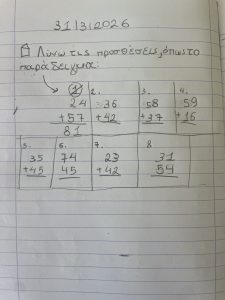 31|3|2026
Λύνω τις προσθέσεις, όπως το
παράδειγμα:
1. 2. 3. 4.
24 36 58 59
+57 +42 +37 +16
81
5. 6. 7. 8
35 74 23 31
+45 45 +42 54